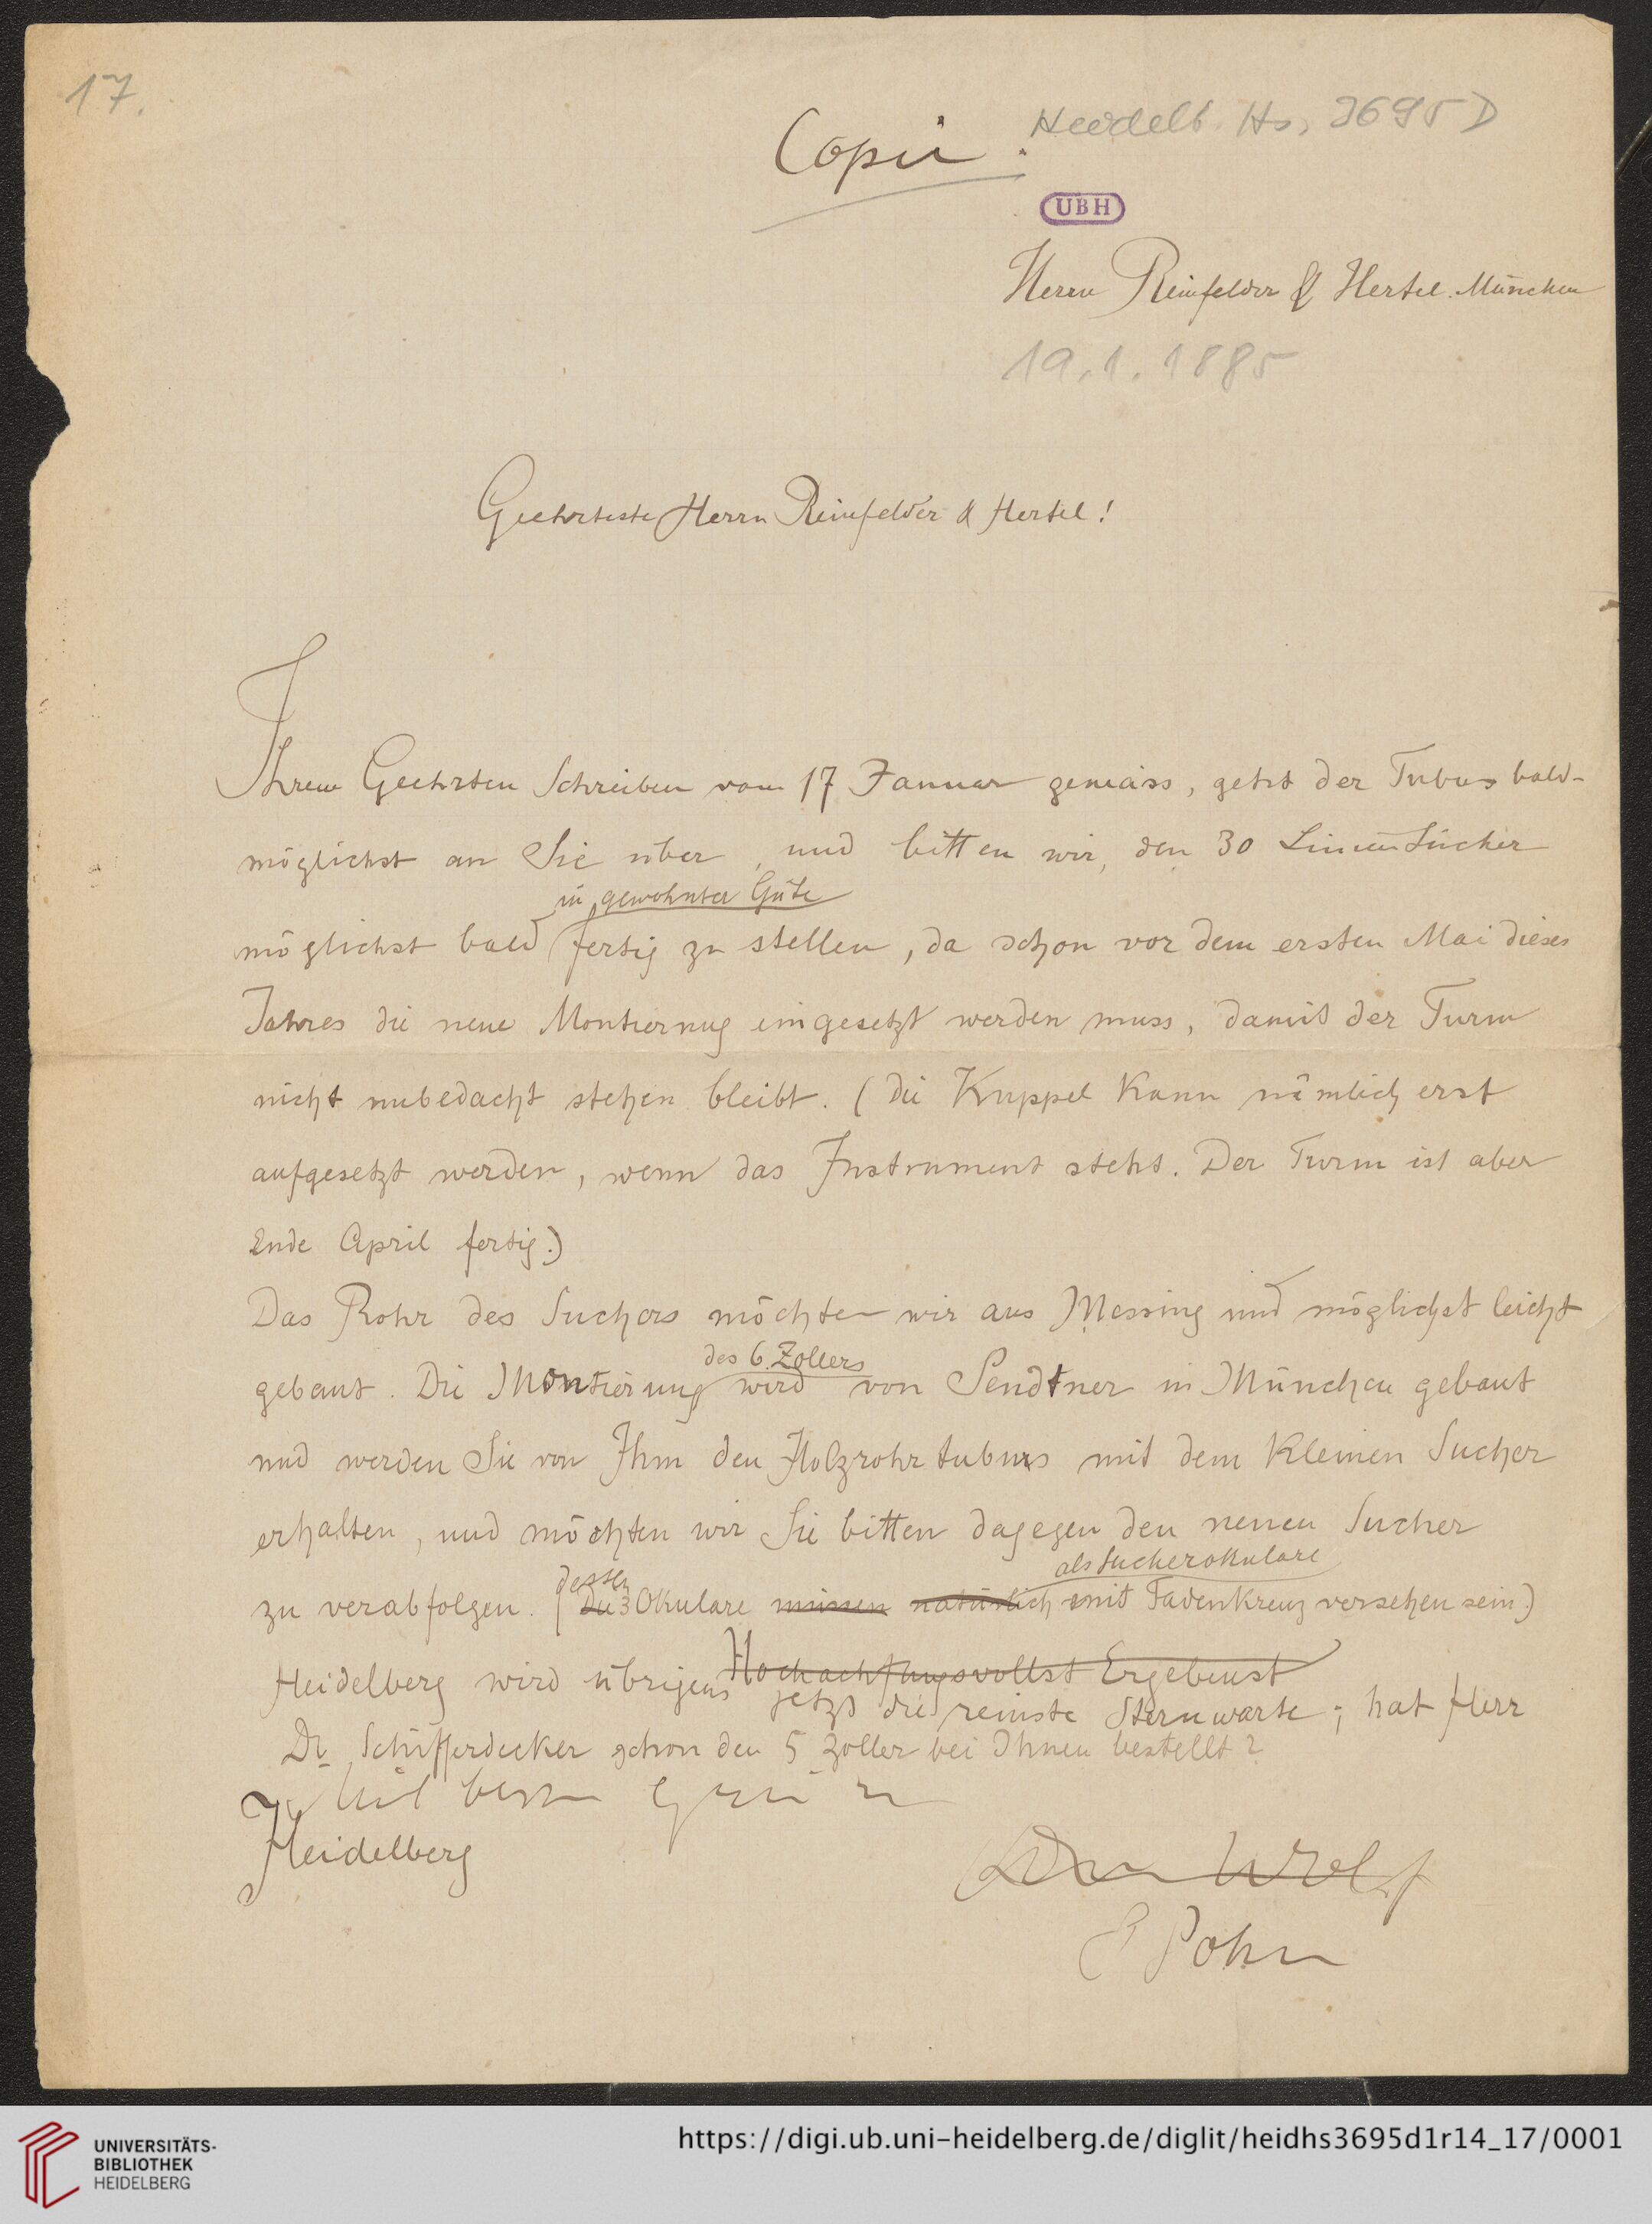 17.
Copie.
Heidelb. Hs. 3695 D
UBH
Herrn Reinfelder & Hertel. München
19.1.1885
Geehrteste Herrn Reinfelder & Hertel!
Ihrem Geehrten Schreiben vom 17 Januar gemäss, geht der Tubus bald-
möglichst an Sie über, und bitten wir, den 30 Linien Sucher
in gewohnter Güte
möglichst bald fertig zu stellen, da schon vor dem ersten Mai dieses
Jahres die neue Montierung eingesetzt werden muss, damit der Turm
nicht unbedacht stehen bleibt. (Die Kuppel kann nämlich erst
aufgesetzt werden, wenn das Instrument steht. Der Turm ist aber
Ende April fertig.)
Das Rohr des Suchers möchten wir aus Messing und möglichst leicht
des 6. Zollers
gebaut. Die Montierung wird von Sendtner in München gebaut
und werden Sie von Ihm den Holzrohrtubus mit dem kleinen Sucher
erhalten, und möchten wir Sie bitten dagegen den neuen Sucher
als Sucherokulare
dessen
zu verabfolgen. (Die 3 Okulare müssen natürlich mit Fadenkreuz versehen sein.)
Hochachtungsvollst Ergebenst
Heidelberg wird übrigens jetzt die reinste Sternwarte; hat Herr
Dr Schifferdecker schon den 5 Zoller bei Ihnen bestellt?
Mit besten
Heidelberg
Wolf